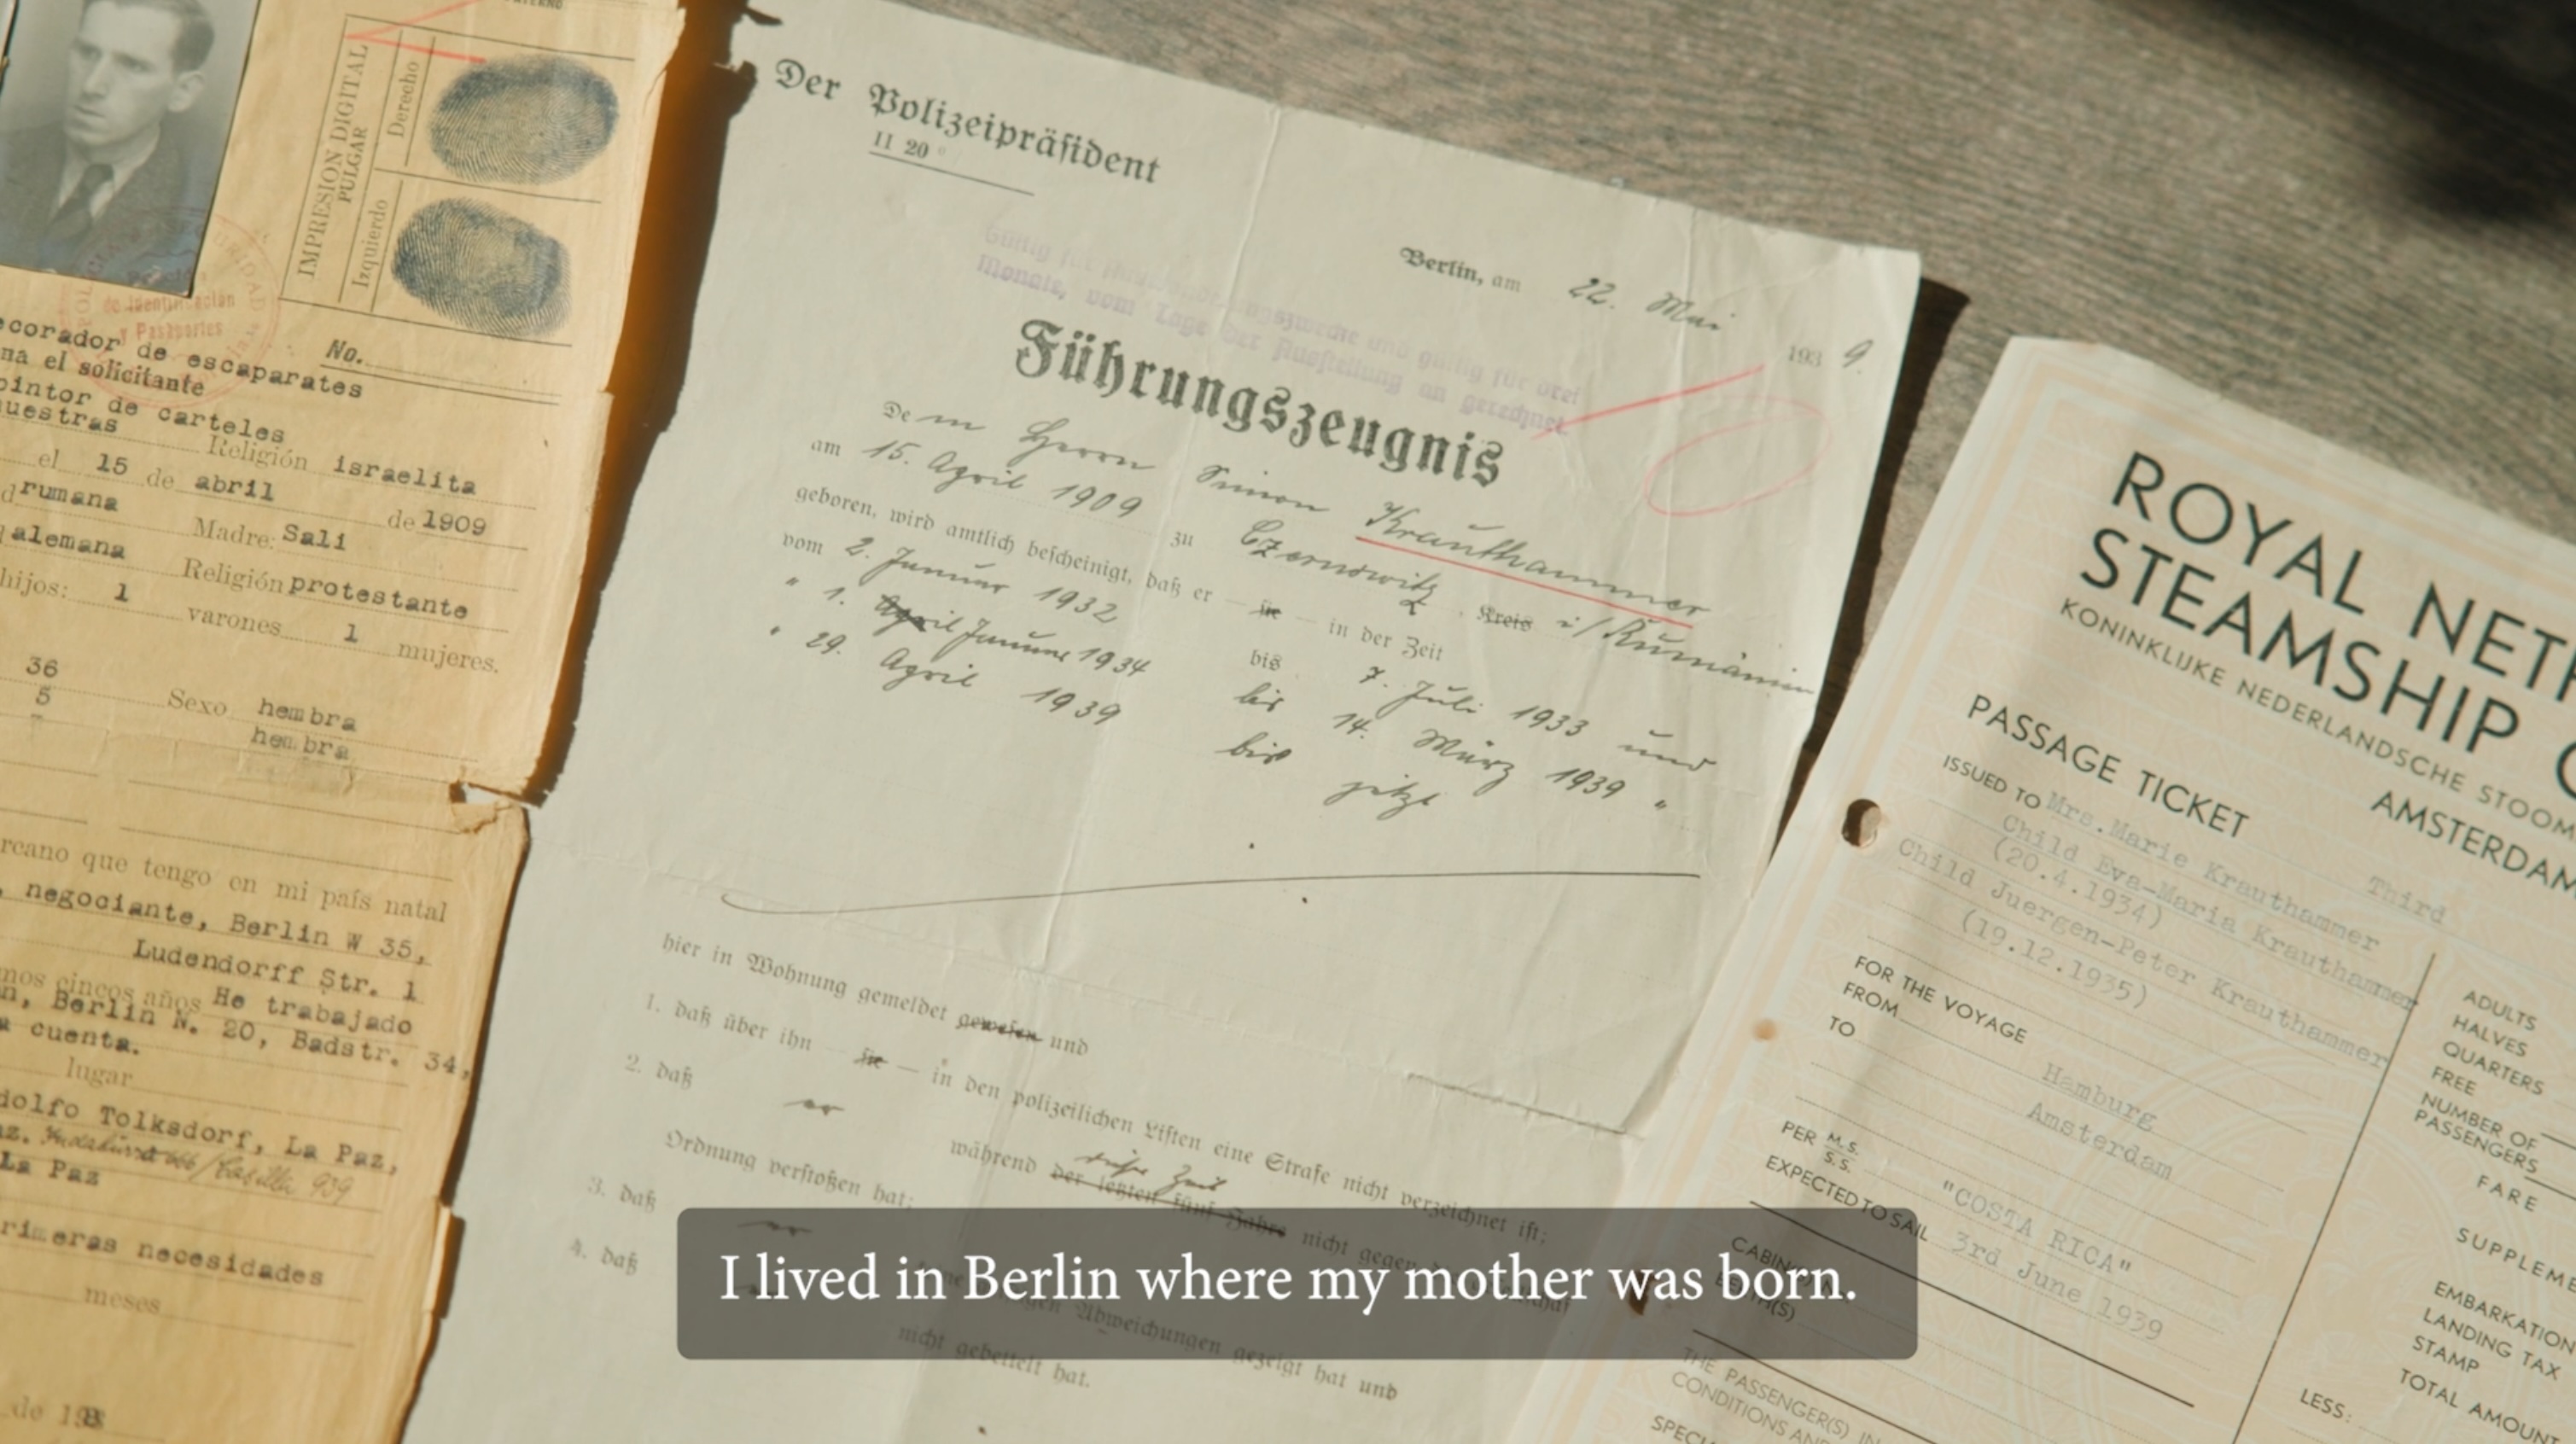 IMPRESION DIGITAL
PULGAR
Derecho
Izquierdo
de Identificación
y Pasaportes
No.
corador de escaparates
na el solicitante
pintor de carteles
uestras
Religión israelita
el 15 de abril de 1909
rumana
Madre: Sali
alemana
Religión protestante
hijos: 1 varones 1 mujeres.
36
5
Sexo hembra
hembra
rcano que tengo en mi país natal
, negociante, Berlin W 35,
Ludendorff Str. 1
mos cincos años He trabajado
n, Berlin N. 20, Badstr. 34,
a cuenta.
lugar
dolfo Tolksdorf, La Paz,
az. Casilla 939
La Paz
rimeras necesidades
meses
de 193
Der Polizeipräsident
II 20
Berlin, am 22. Mai 1939.
Monate, vom Tage der Ausstellung an gerechnet.
Führungszeugnis
Dem Herrn Simon Krauthammer
am 15. April 1909 zu Czernowitz, Kreis i/Rumänien
geboren, wird amtlich bescheinigt, daß er — sie — in der Zeit
vom 2. Januar 1932 bis 7. Juli 1933 und
" 1. April Januar 1934 bis 14. März 1939 "
" 29. April 1939 bis jetzt
hier in Wohnung gemeldet gewesen und
1. daß über ihn — sie — in den polizeilichen Listen eine Strafe nicht verzeichnet ist;
2. daß er während der letzten fünf Jahre diese Zeit nicht gegen
Ordnung verstoßen hat;
3. daß er
4. daß
Abweichungen gezeigt hat und
nicht gebettelt hat.
ROYAL NET
STEAMSHIP C
KONINKLIJKE NEDERLANDSCHE STOOM
AMSTERDAM
PASSAGE TICKET
ISSUED TO Mrs. Marie Krauthammer Third
Child Eva-Maria Krauthammer
(20.4.1934)
Child Juergen-Peter Krauthammer
(19.12.1935)
FOR THE VOYAGE
FROM Hamburg
TO Amsterdam
PER M.S. S.S. "COSTA RICA"
EXPECTED TO SAIL 3rd June 1939
THE PASSENGER(S) IN
CONDITIONS AN
SPECI
ADULTS
HALVES
QUARTERS
FREE
NUMBER OF
PASSENGERS
FARE
SUPPLEME
EMBARKATION
LANDING TAX
STAMP
TOTAL AMOUNT
LESS:
I lived in Berlin where my mother was born.